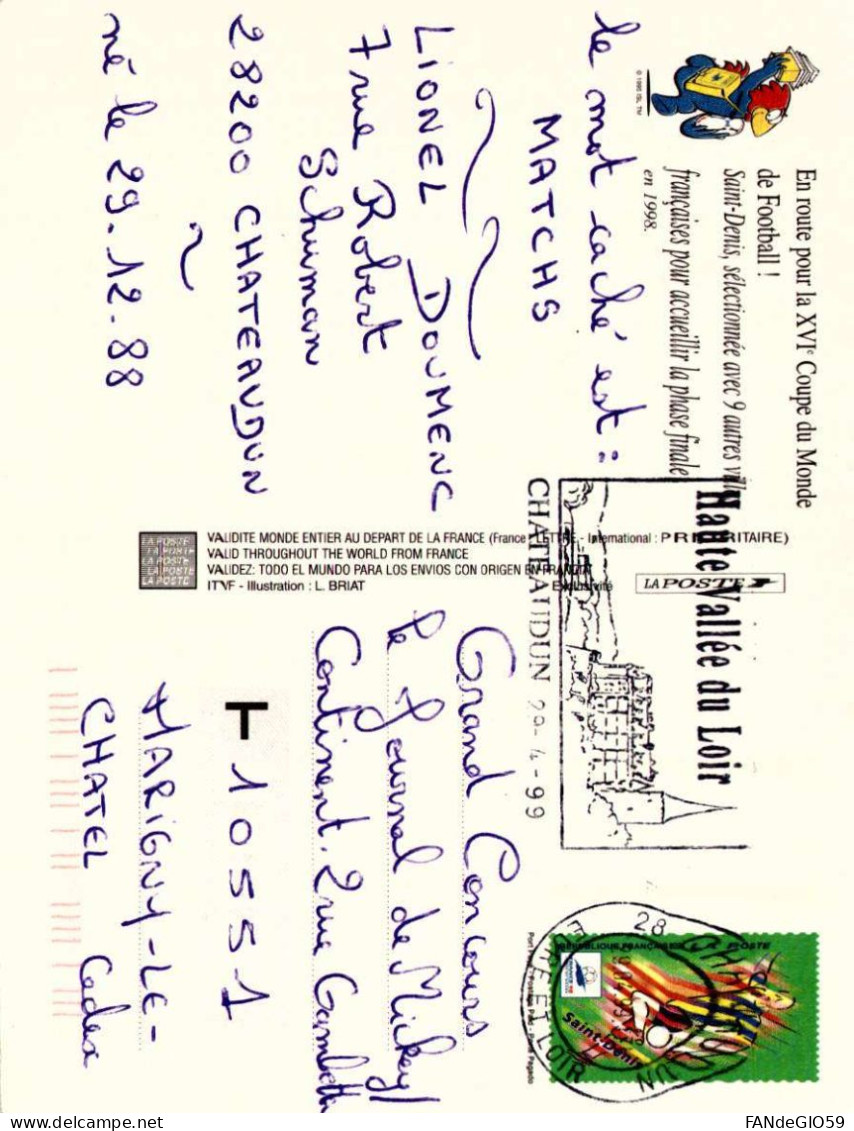 © 1996 ISL TM
En route pour la XVIe Coupe du Monde
de Football !
Saint-Denis, sélectionnée avec 9 autres villes
françaises pour accueillir la phase finale
en 1998.
le mot caché est :
MATCHS
LIONEL DOUMENC
7 rue Robert
Schuman
28200 CHATEAUDUN
né le 29.12.88
VALIDITE MONDE ENTIER AU DEPART DE LA FRANCE (France : LETTRE - International : PRIORITAIRE)
VALID THROUGHOUT THE WORLD FROM FRANCE
VALIDEZ: TODO EL MUNDO PARA LOS ENVIOS CON ORIGEN EN FRANCIA
ITVF - Illustration : L. BRIAT
Exclusivité
LA POSTE
LA POSTE
LA POSTE
LA POSTE
LA POSTE
LA POSTE
Haute Vallée du Loir
CHATEAUDUN 29-4-99
28 CHATEAUDUN
EURE ET LOIR
REPUBLIQUE FRANÇAISE
LA POSTE
FRANCE 98
Saint-Denis
Grand Concours
le Journal de Mickey/
Continent. 2 rue Gambetta
T 10551
MARIGNY-LE-
CHATEL Cedex
FANdeGIO59